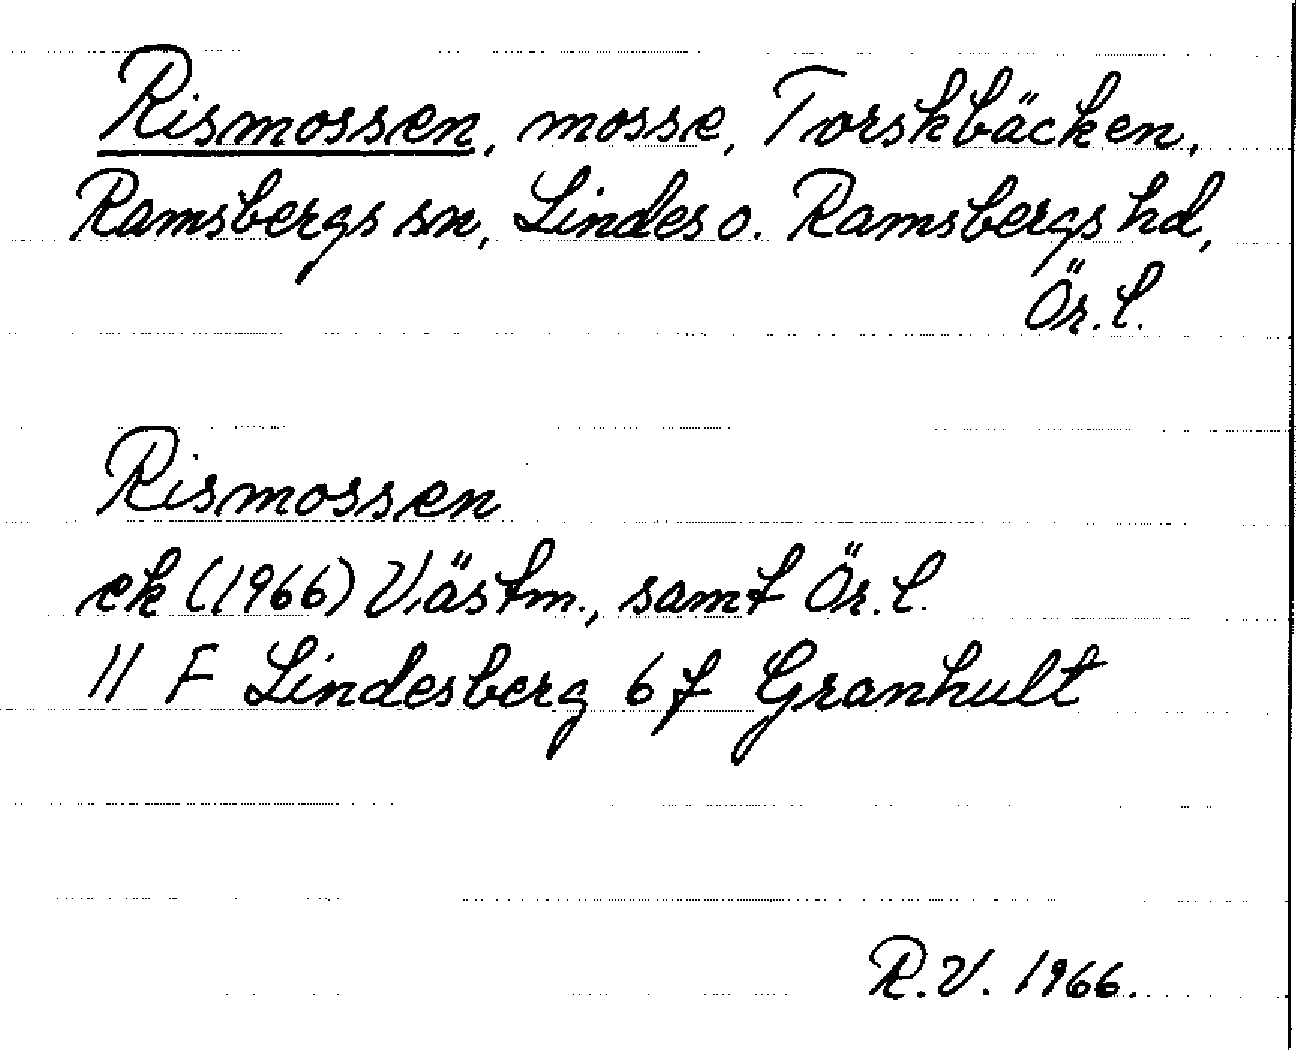 Rismossen, mosse, Torskbäcken,
Ramsbergs sn, Lindes o. Ramsbergs hd,
Ör.l.
Rismossen
ek (1966) Västm., samt Ör.l.
11 F Lindesberg 6 f Granhult
R.V. 1966.